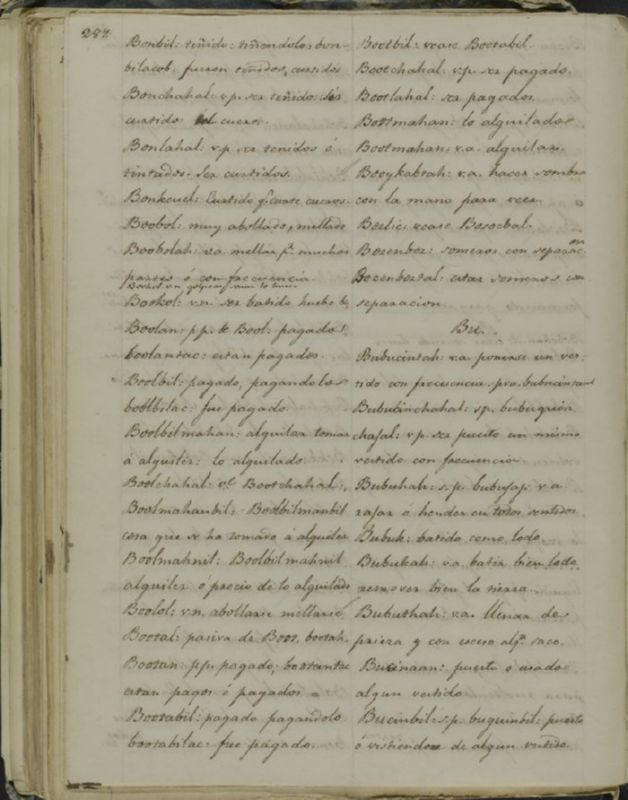 287.
Bonbil: teñido: tiñendolo; bon-
bilacob: fueron teñidos, curtidos
Bonchahal: v.p. ser teñido: ser
curtido el cuero.
Bonlahal: v.p. ser teñidos ó
tintados. Ser curtidos.
Bonkeuel: Curtido q.e curte cueros.
Boobol: muy abollado, mellado
Boobolah: va. mellar p.r muchas
partes ó con frecuencia.
Bookol: v.n. ser batido huebo &
Boolan: pp. de Bool: pagado:
boolantac: estan pagados.
Boolbil: pagado, pagandolo
boolbilac: fue pagado
Boolbilmahan: alquilar tomar
á alquiler: lo alquilado.
Boolchahal: v.l Bootchahal:
Boolmahanbil: Boolbilmanbil
cosa que se ha tomado á alquiler
Boolmahnil: Boolbilmahnil
alquiler o precio de lo alquilado
Boolol: v.n. abollarse mellarse
Bootal: pasiva de Boot, bootah.
Bootan: pp. pagado; bootantac
estan pagos ó pagados
Bootabil: pagado pagandolo
bootabilac: fue pagado.
Bootbil: vease Bootabil.
Bootchahal: v.p. ser pagado.
Bootlahal: ser pagados.
Bootmahan: lo alquilado
Bootmahan: v.a. alquilar.
Booykabtah: v.a. hacer sombra
con la mano para veer.
Bozlic: vease Bosocbal.
Bozenboz: someros con separacion
Bozenboztal: estar someros con
separacion.
Bu.
Bubucintah: v.a. ponerse un ves-
tido con frecuencia. pra. bubucintaul
Bubucinchahal: sp. bubuquin
chajal: v.p. ser puesto un mismo
vestido con frecuencia
Bubuhah: s.p. bubujaj. v.a
rajar ó hender en todos sentidos
Bubuk: batido como lodo.
Bubukah: v.a. batir bien lodo,
remover bien la tierra.
Bubuthah: v.a. llenar de
prieza y con exceso alg.n saco.
Bucinaan: puesto ó usado
algun vestido
Bucinbil: s.p. buquinbil: puesto
ó vistiendose de algun vestido.